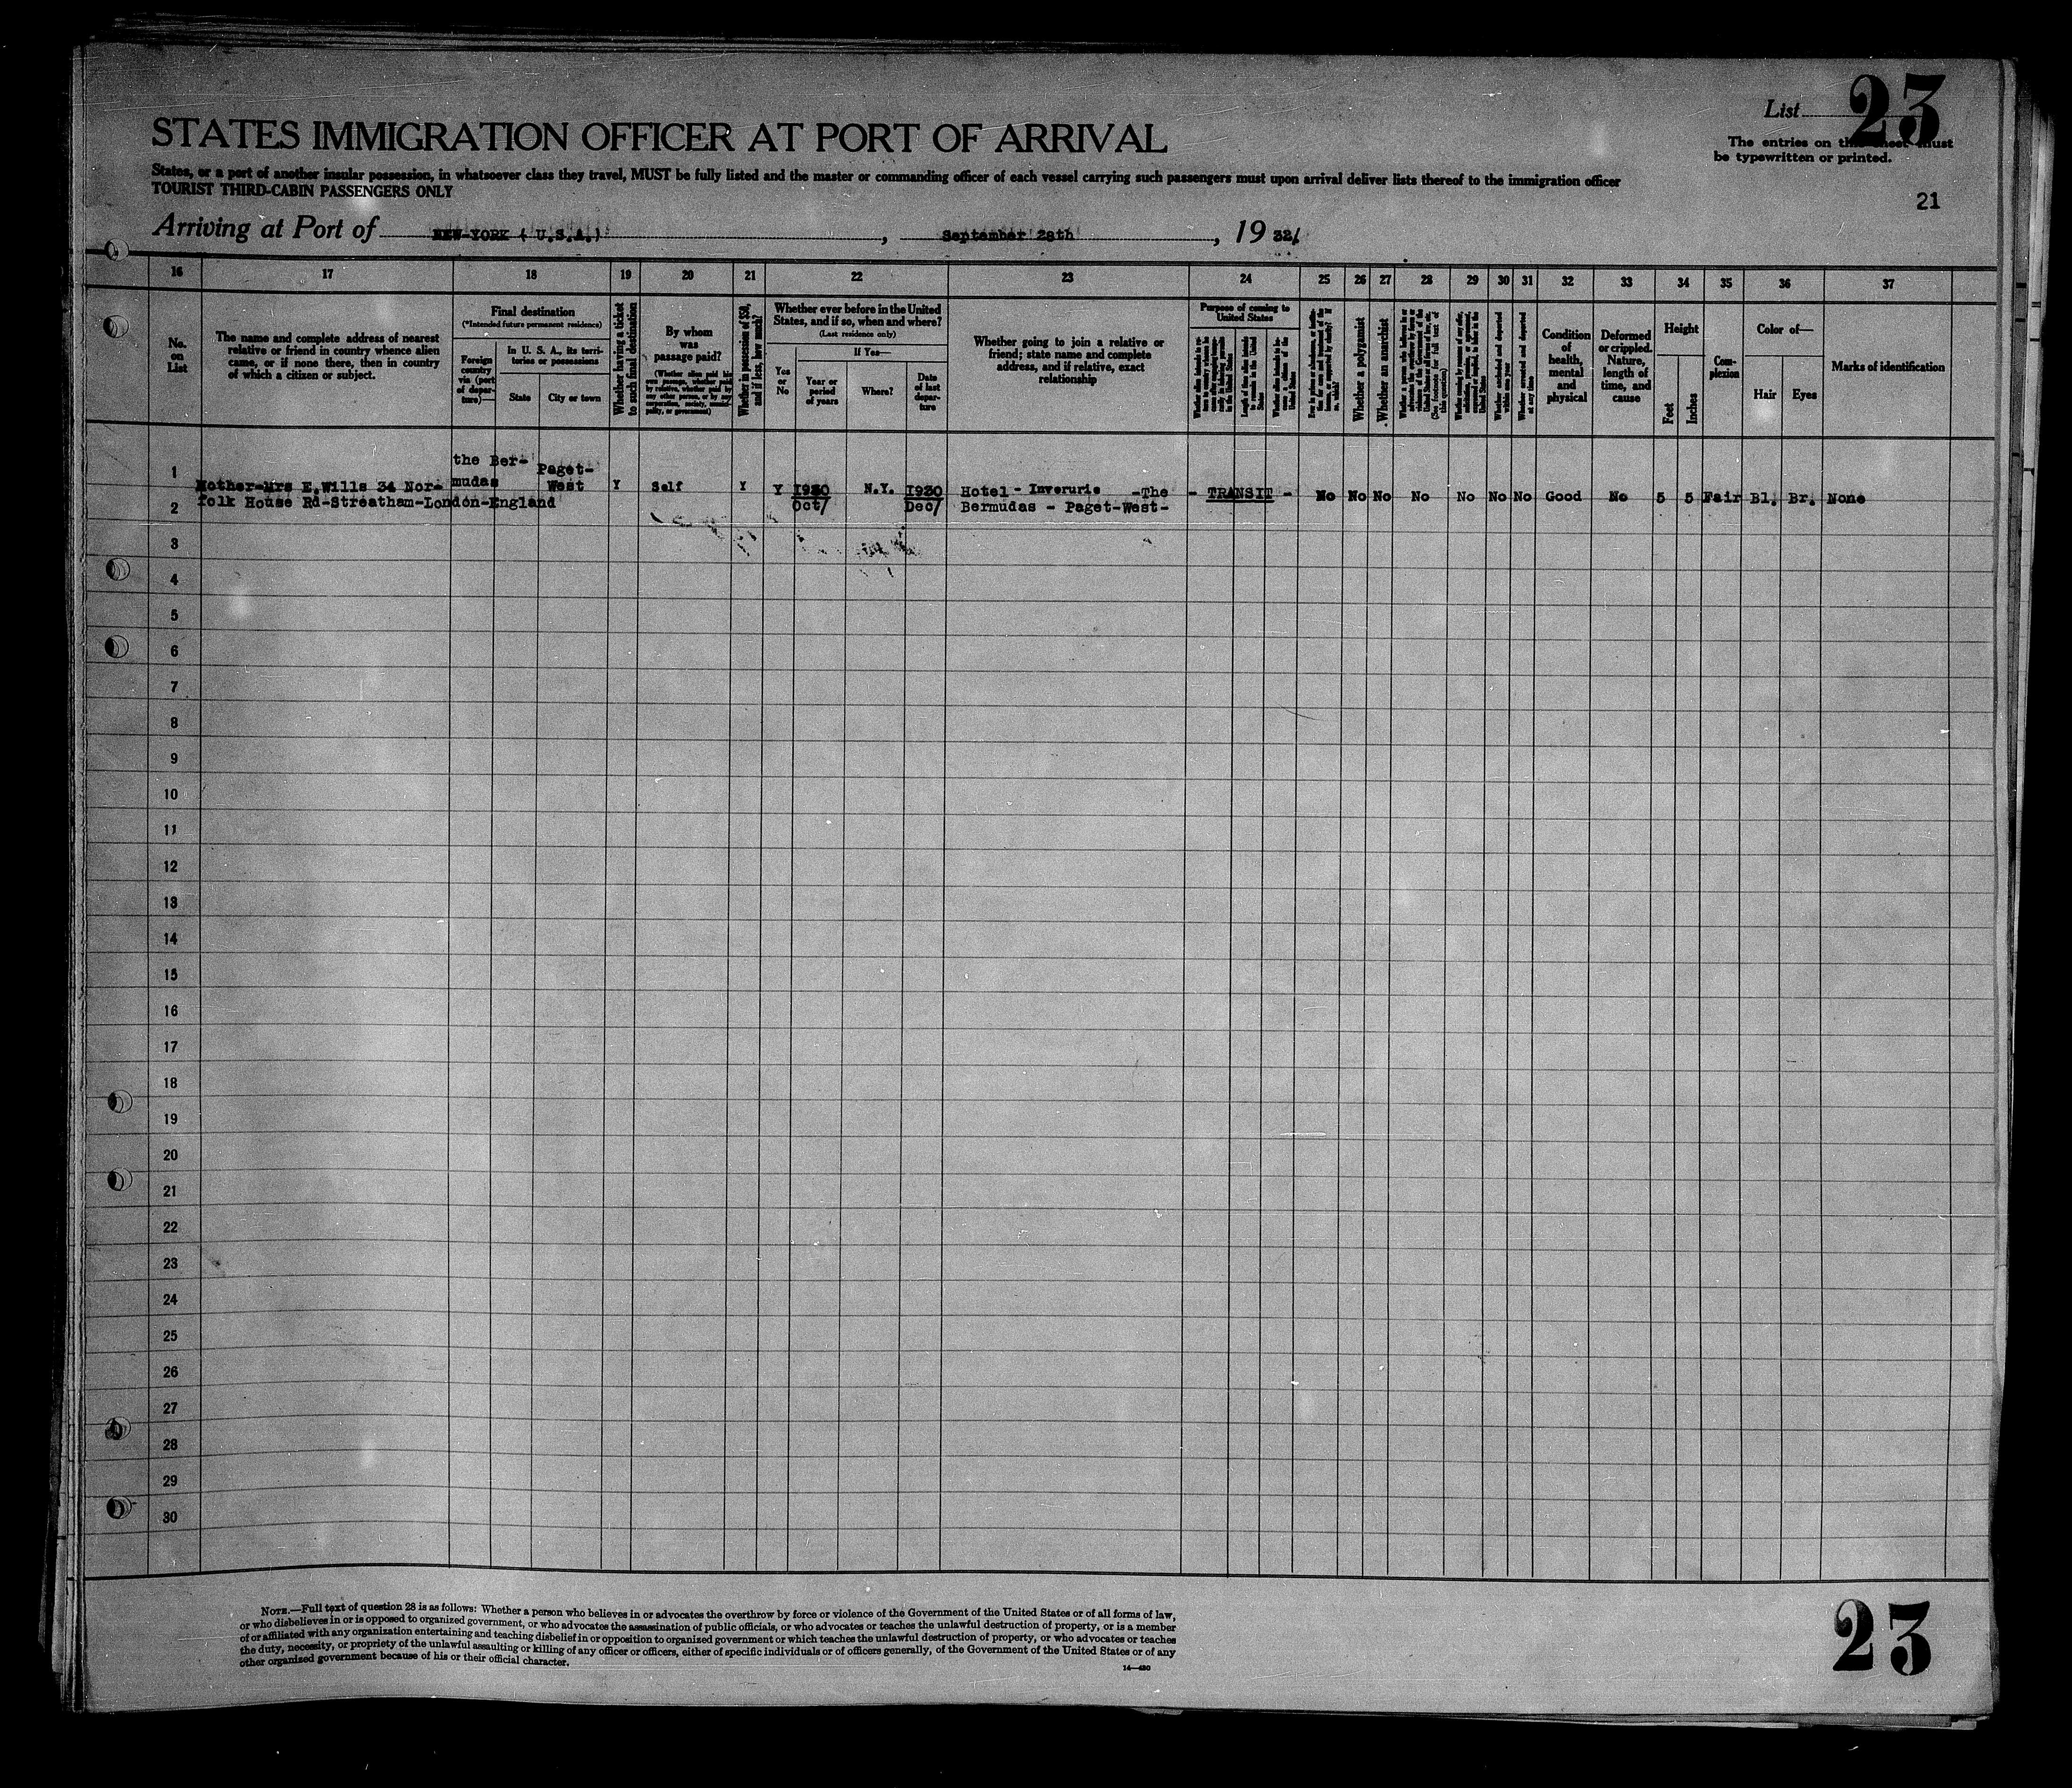 List 23
STATES IMMIGRATION OFFICER AT PORT OF ARRIVAL
The entries on this sheet must
be typewritten or printed.
States, or a part of another insular possession, in whatsoever class they travel, MUST be fully listed and the master or commanding officer of each vessel carrying such passengers must upon arrival deliver lists thereof to the immigration officer
TOURIST THIRD-CABIN PASSENGERS ONLY
21
Arriving at Port of NEW-YORK ( U.S.A.) , September 28th , 19 32/
16 17 18 19 20 21 22 23 24 25 26 27 28 29 30 31 32 33 34 35 36 37
No.
on
List
The name and complete address of nearest
relative or friend in country whence alien
came, or if none there, then in country
of which a citizen or subject.
Final destination
(*Intended future permanent residence)
Foreign
country
via (port
of depar-
ture)—
In U. S. A., its terri-
tories or possessions
State
City or town
Whether having a ticket
to such final destination
By whom
was
passage paid?
(Whether alien paid his
own passage, whether paid
by relative, whether paid by
any other person, or by any
corporation, society, munici-
pality, or government)
Whether in possession of $50,
and if less, how much?
Whether ever before in the United
States, and if so, when and where?
(Last residence only)
Yes
or
No
If Yes—
Year or
period
of years
Where?
Date
of last
depar-
ture
Whether going to join a relative or
friend; state name and complete
address, and if relative, exact
relationship
Purpose of coming to
United States
Length of time alien intends
to remain in the United
States
Whether a polygamist
Whether an anarchist
(See footnote for full text of
this question)
Whether arrested and deported
at any time
Condition
of
health,
mental
and
physical
Deformed
or crippled.
Nature,
length of
time, and
cause
Height
Feet
Inches
Com-
plexion
Color of—
Hair
Eyes
Marks of identification
1
the Ber-
mudas
Paget-
West
Mother-Mrs E.Wills 34 Nor-
folk House Rd-Streatham-London-England
Y Self Y Y 1930 N.Y. 1930
Oct/ Dec/
Hotel - Inverurie -The
Bermudas - Paget-West-
- TRANSIT - No No No No No No No Good No 5 5 Fair Bl. Br. None
2
3
4
5
6
7
8
9
10
11
12
13
14
15
16
17
18
19
20
21
22
23
24
25
26
27
28
29
30
NOTE.—Full text of question 28 is as follows: Whether a person who believes in or advocates the overthrow by force or violence of the Government of the United States or of all forms of law,
or who disbelieves in or is opposed to organized government, or who advocates the assassination of public officials, or who advocates or teaches the unlawful destruction of property, or is a member
of or affiliated with any organization entertaining and teaching disbelief in or opposition to organized government or which teaches the unlawful destruction of property, or who advocates or teaches
the duty, necessity, or propriety of the unlawful assaulting or killing of any officer or officers, either of specific individuals or of officers generally, of the Government of the United States or of any
other organized government because of his or their official character.
14—430
23